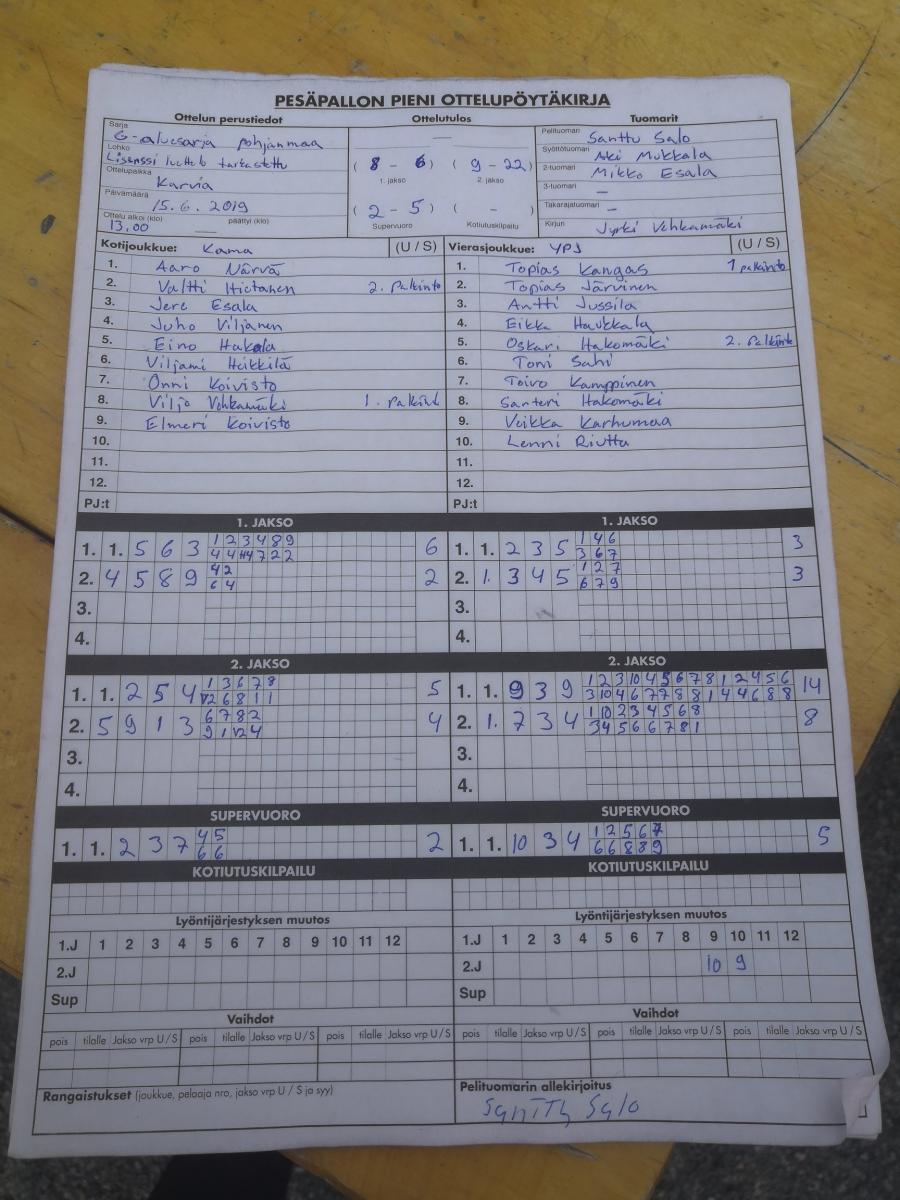 PESÄPALLON PIENI OTTELUPÖYTÄKIRJA
Ottelun perustiedot Ottelutulos Tuomarit
Sarja G-aluesarja pohjanmaa
Lohko Lisenssi luettelo tarkastettu
Ottelupaikka Karvia
Päivämäärä 15.6.2019
Ottelu alkoi (klo) päättyi (klo)
13.00
( 8 - 6 ) ( 9 - 22 )
1. jakso 2. jakso
( 2 - 5 ) ( - )
Supervuoro Kotiutuskilpailu
Pelituomari Santtu Salo
Syöttötuomari Aki Mukkala
2-tuomari Mikko Esala
3-tuomari –
Takarajatuomari –
Kirjuri Jyrki Vehkamäki
Kotijoukkue: Kama (U / S)
1. Aaro Närvä
2. Valtti Hietanen 2. palkinto
3. Jere Esala
4. Juho Viljanen
5. Eino Hakala
6. Viljami Heikkilä
7. Onni Koivisto
8. Viljo Vehkamäki 1. palkinto
9. Elmeri Koivisto
10.
11.
12.
PJ:t
Vierasjoukkue: YPJ (U / S)
1. Topias Kangas 1 palkinto
2. Topias Järvinen
3. Antti Jussila
4. Eikka Haukkala
5. Oskari Hakomäki 2. palkinto
6. Toni Sahi
7. Toivo Kamppinen
8. Santeri Hakomäki
9. Veikka Karhumaa
10. Lenni Riutta
11.
12.
PJ:t
1. JAKSO
1. 1. 5 6 3 1 2 3 4 8 9 6
4 4 7 2 2
2. 4 5 8 9 4 2 2
6 4
3.
4.
1. JAKSO
1. 1. 2 3 5 1 4 6 3
3 6 7
2. 1. 3 4 5 1 2 7 3
6 7 9
3.
4.
2. JAKSO
1. 1. 2 5 4 1 3 6 7 8 5
2 6 8 1 1
2. 5 9 1 3 6 7 8 2 4
9 1 2 4
3.
4.
2. JAKSO
1. 1. 9 3 9 1 2 3 10 4 5 6 7 8 1 2 4 5 6 14
3 10 4 6 7 7 8 8 1 4 4 6 8 8
2. 1. 7 3 4 1 10 2 3 4 5 6 8 8
3 4 5 6 6 7 8 1
3.
4.
SUPERVUORO
1. 1. 2 3 7 4 5 2
6 6
SUPERVUORO
1. 1. 10 3 4 1 2 5 6 7 5
6 6 8 8 9
KOTIUTUSKILPAILU
KOTIUTUSKILPAILU
Lyöntijärjestyksen muutos
1.J 1 2 3 4 5 6 7 8 9 10 11 12
2.J
Sup
Lyöntijärjestyksen muutos
1.J 1 2 3 4 5 6 7 8 9 10 11 12
2.J 10 9
Sup
Vaihdot
pois tilalle Jakso vrp U / S pois tilalle Jakso vrp U / S pois tilalle Jakso vrp U / S
Vaihdot
pois tilalle Jakso vrp U / S pois tilalle Jakso vrp U / S pois tilalle Jakso vrp U / S
Rangaistukset (joukkue, pelaaja nro, jakso vrp U / S ja syy)
Pelituomarin allekirjoitus
Santtu Salo